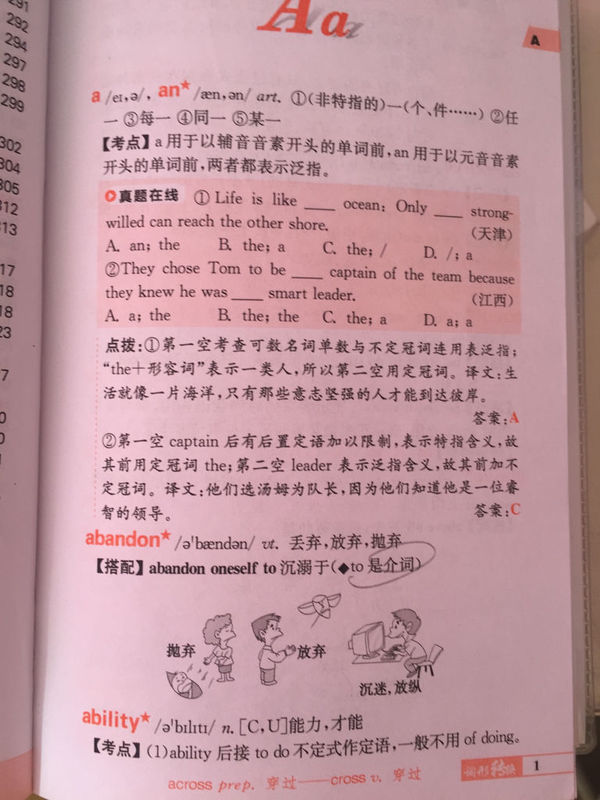 291
292
294
297
298
299
302
304
305
312
313
17
18
18
23
7
0
0
Aa
A
a /eɪ,ə/, an* /æn,ən/ art. ①(非特指的)一(个、件……) ②任
一 ③每一 ④同一 ⑤某一
【考点】a 用于以辅音音素开头的单词前,an 用于以元音音素
开头的单词前,两者都表示泛指。
真题在线 ① Life is like ____ ocean: Only ____ strong-
willed can reach the other shore. (天津)
A. an; the B. the; a C. the; / D. /; a
②They chose Tom to be ____ captain of the team because
they knew he was ____ smart leader. (江西)
A. a; the B. the; the C. the; a D. a; a
点拨:①第一空考查可数名词单数与不定冠词连用表泛指;
“the+形容词”表示一类人,所以第二空用定冠词。译文:生
活就像一片海洋,只有那些意志坚强的人才能到达彼岸。
答案:A
②第一空 captain 后有后置定语加以限制,表示特指含义,故
其前用定冠词 the;第二空 leader 表示泛指含义,故其前加不
定冠词。译文:他们选汤姆为队长,因为他们知道他是一位睿
智的领导。 答案:C
abandon* /ə'bændən/ vt. 丢弃,放弃,抛弃
【搭配】abandon oneself to 沉溺于(◆to 是介词)
抛弃 放弃
沉迷,放纵
ability* /ə'bɪlɪtɪ/ n. [C,U]能力,才能
【考点】(1)ability 后接 to do 不定式作定语,一般不用 of doing。
across prep. 穿过——cross v. 穿过
词形转换 1